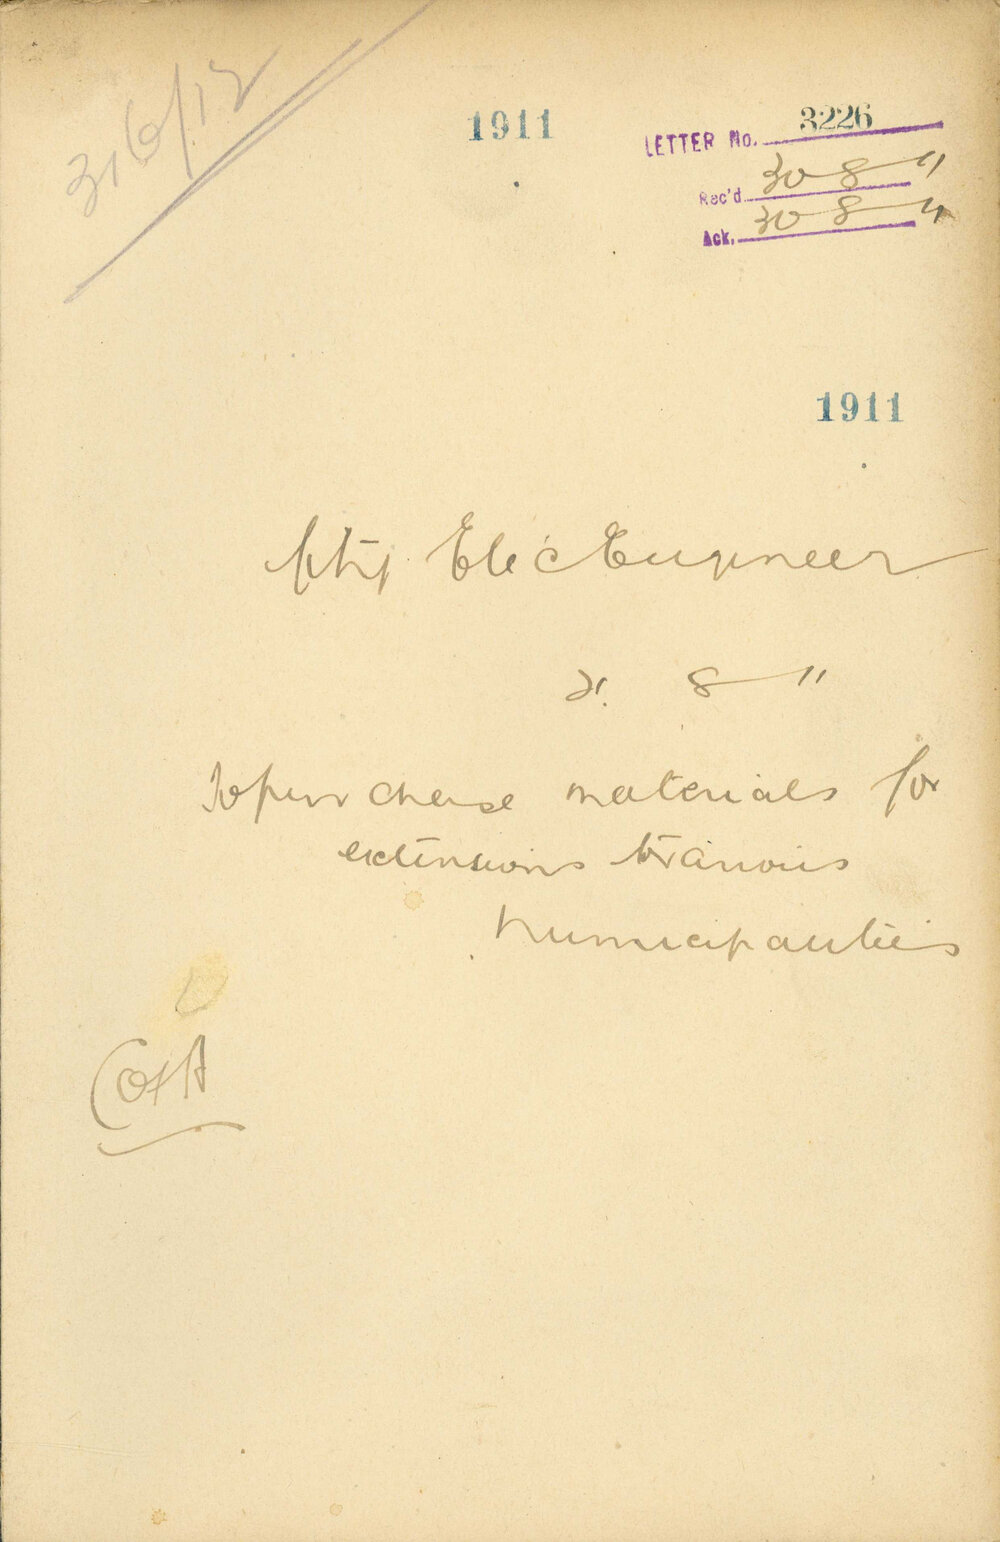 316/12
1911
LETTER No. 3226
Rec'd 30 8 11
Ack. 30 8 11
1911
Actg Elec Engineer
8 11
To purchase materials for
extensions to various
Municipalities